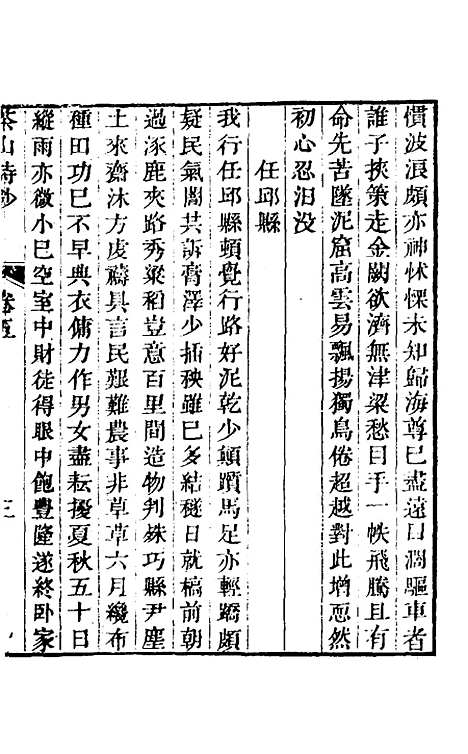 慣波浪頗亦神怵慄未知歸海尊已盡遠日淵驅車者
誰子挾策走金闕欲濟無津梁愁目手一帙飛騰且有
命先苦墜泥窟高雲易飄揚獨鳥倦超越對此增惡然
初心忍汨没
任邱縣
我行任邱縣頓覺行路好泥乾少顛躓馬足亦輕蹻頗
疑民氣闓共訴膏澤少插秧雖已多結穟日就槁前朝
過涿鹿夾路秀粱稻豈意百里間造物判殊巧縣尹塵
土來齋沐方虔禱具言民艱難農事非草草六月纔布
種田功已不早典衣傭力作男女盡耘擾夏秋五十日
縱雨亦微小已空室中財徒得眼中飽豐隆遂終卧家
茶山詩鈔
卷五
三